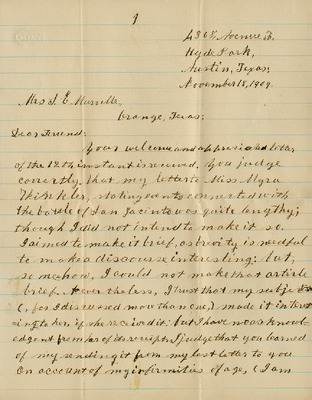 1
4301 Avenue B.
Hyde Park,
Austin, Texas,
November 18, 1909.
Mrs J. E.
Orange, Texas;
Dear Friend:
Your welcome and appreciated letter
of the 12th instant is received. You judge
correctly that my letter to Miss Myra
Winkler, stating events connected with
the battle of San Jacinto was quite lengthy;
though I did not intend to make it so.
I aimed to make it brief, as brevity is needful
to make a discourse interesting: but,
somehow, I could not make that article
brief. Nevertheless, I trust that my subject
(for I discussed more than one,) made it interest
ing to her, if she received it: but I have no acknowl-
edgment from her of its receipt. I judge that you learned
of my sending it from my last letter to you
On account of my infirmities of age, (I am